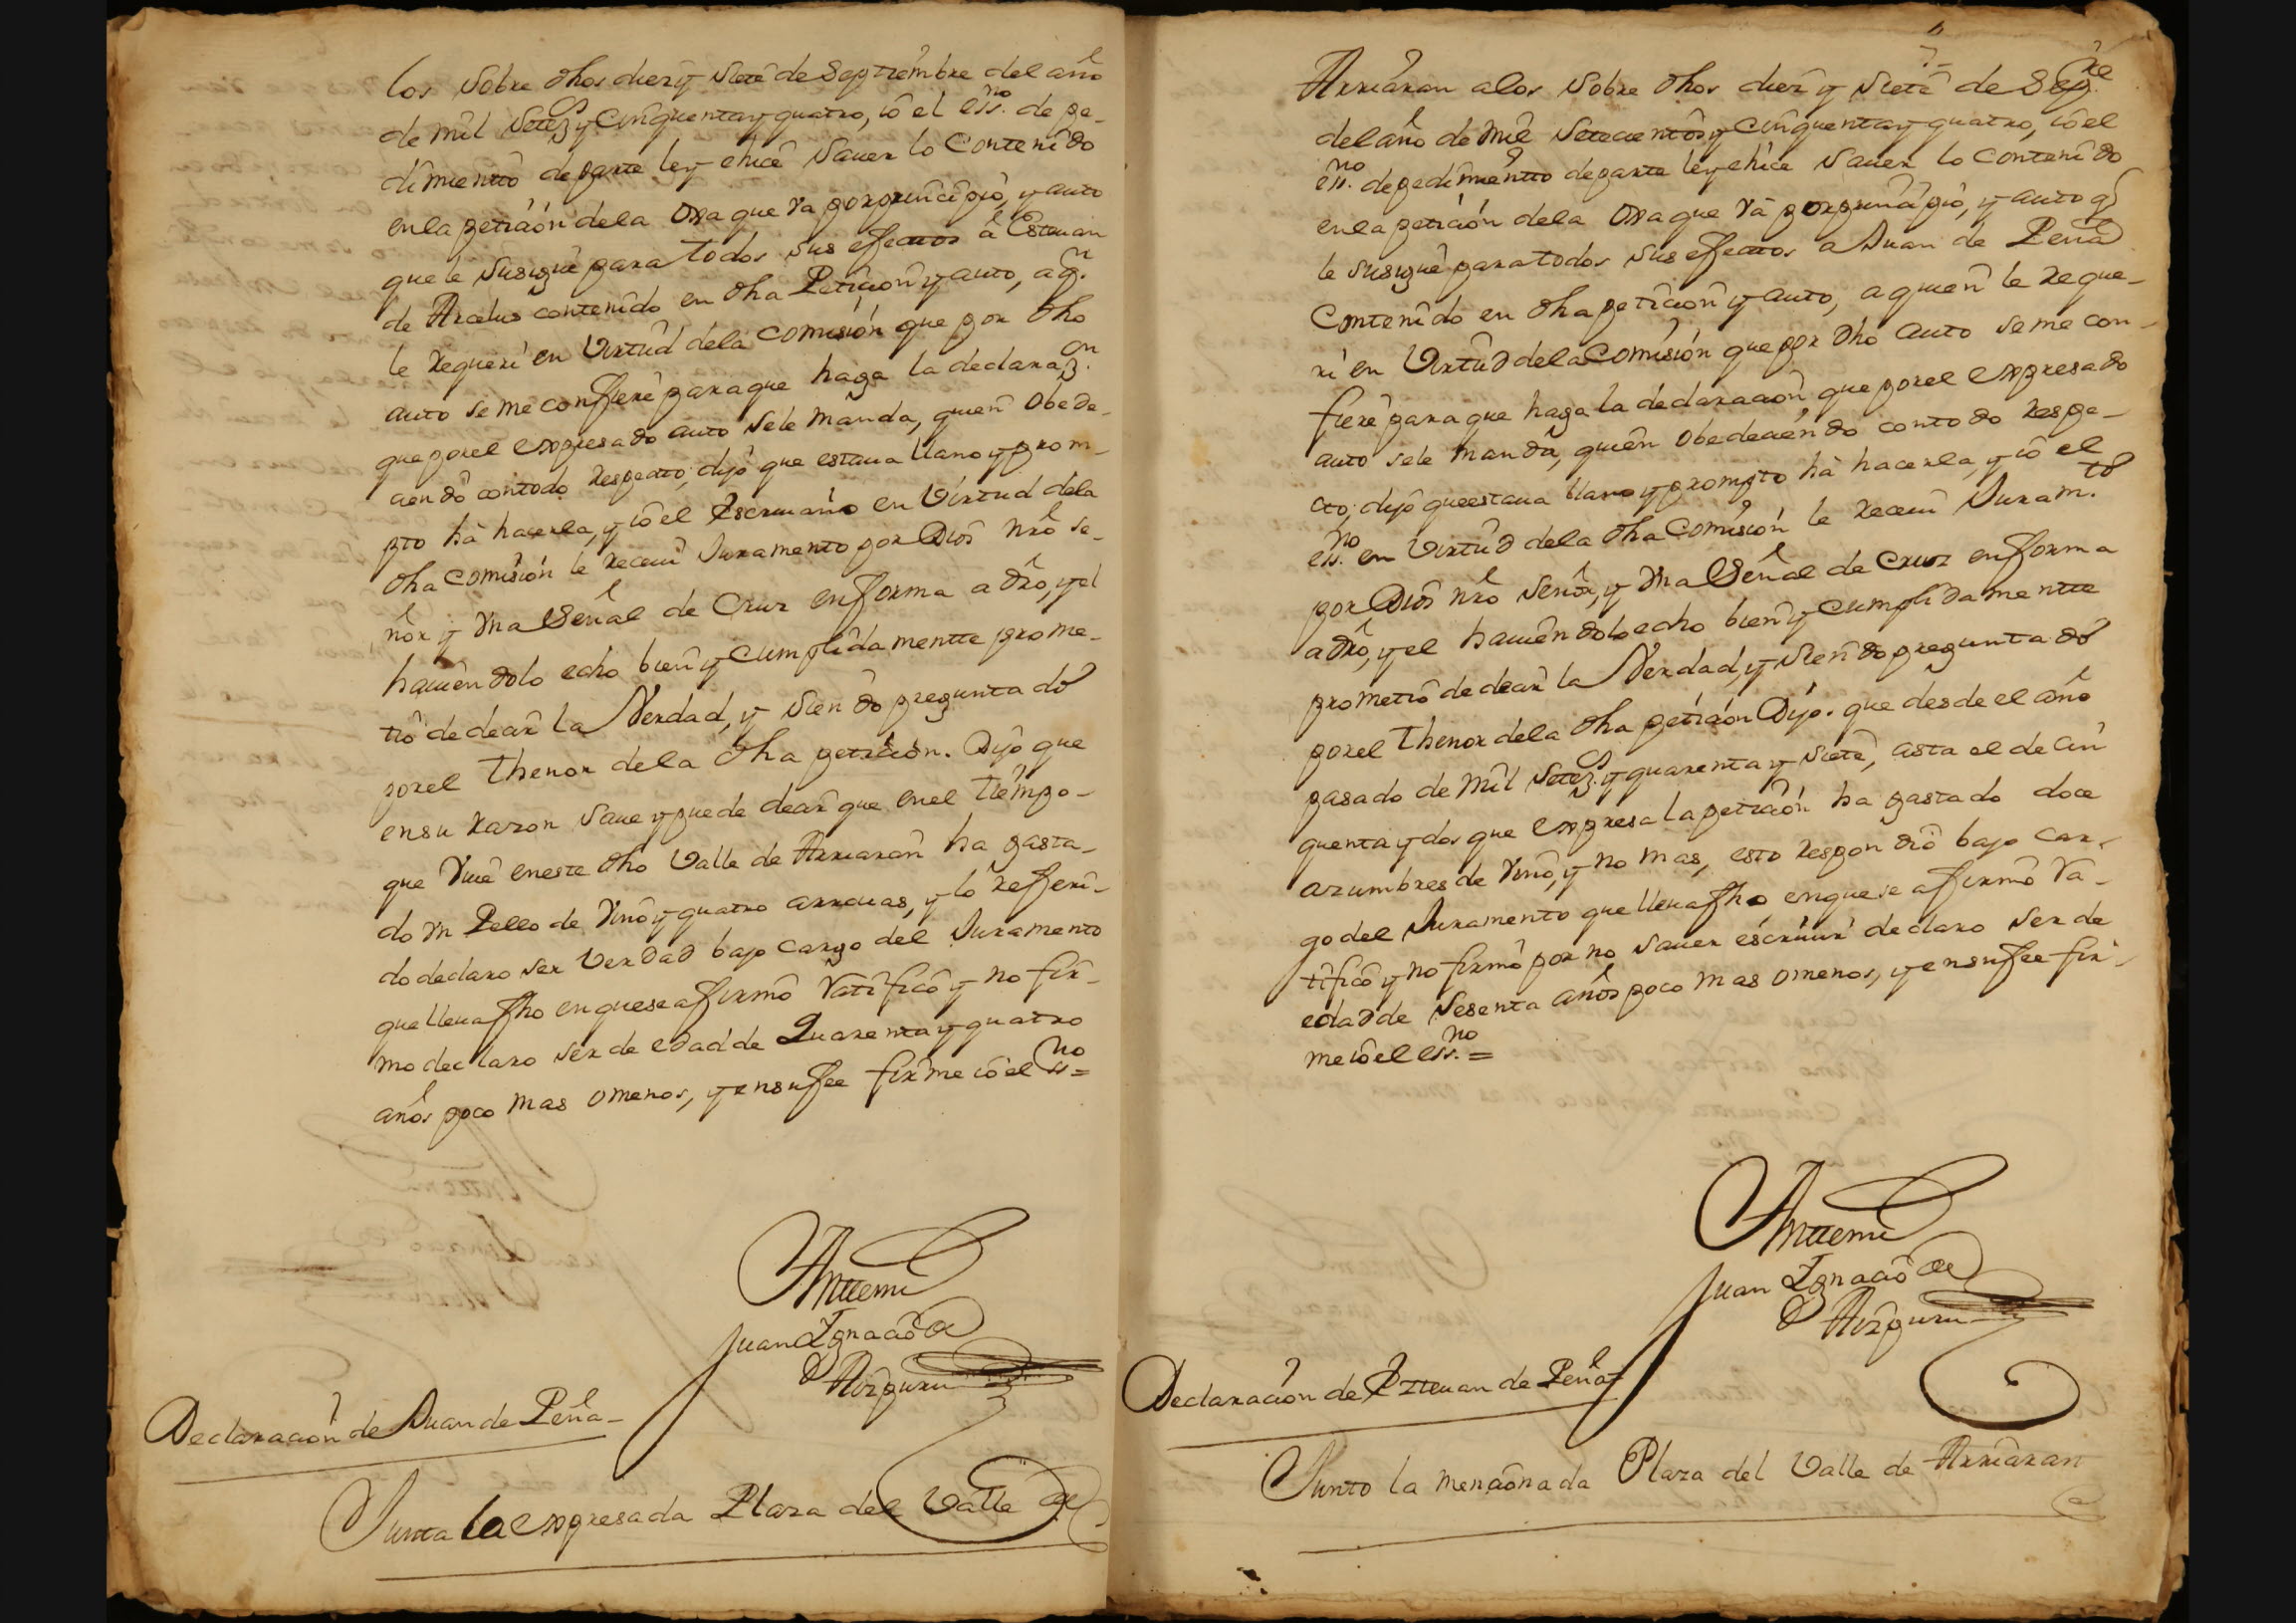 los sobre dhos diez y siete de Septiembre del año
de mil setez.s y cinquenta y quatro, io el ess.no de pe-
dimientto de parte ley e hice sauer lo contenido
en la petición de la ora que va por principio, y auto
que le susigue para todos sus efecttos â Esteuan
de Arcelus contenido en dha Petición y auto, a q.n
le requeri en Virtud dela comisión que por dho
auto se me confiere para que haga la declaraz.on
que por el expresado auto se le manda, quien obede-
ciendo contodo respecto, dijo que estaua llano y prom-
pto hà hacerla, y io el Escriuano en Virtud dela
dha comisión le receui Juramento por Dios nrô se-
ñor y vna Señal de Cruz en forma a drô, y el
hauiendolo echo bien y cumplidamentte prome-
tiò de decir la Verdad, y siendo preguntado
por el thenor dela dha petición. Dijo que
en su razon saue y puede decir que en el tiempo
que viue en este dho Valle de Arriaran ha gasta-
do vn Pelleo de vino y quatro arrouas, y lo refferi-
do declaro ser Verdad bajo cargo del Juramento
que lleua fho en que se affirmô ratificô y no fir-
mo declaro ser de edad de Quarenta y quatro
años poco mas omenos, y en su fee firme io el ss.no =
Anttemi
Juan Ignacio de
Aizpuru
Declaración de Juan de Peña-
Junto la expresada Plaza del Valle de
Arriaran alos sobre dhos diez y siete de Sep.re
del año de mil setecientos y cinquenta y quatro, io el
ess.no de pedimientto de parte ley e hice sauer lo contenido
en la petición dela ora que và por principio, y auto q.e
le susigue para todos sus efecttos a Juan de Peña
contenido en dha petición y auto, a quien le reque-
ri en Virtud dela Comisión que por dho auto se me con-
fiere para que haga la declaración que por el expresado
auto se le manda, quien obedeciendo contodo respe-
cto, dijo que estaua llano y prompto hà hacerla, y io el
ess.no en Virtud dela dha Comisión le receui Juram.to
por Dios nrô Señor, y vna Señal de Cruz en forma
a drô, y el hauiendolo echo bien y cumplidamentte
prometiò de decir la Verdad, y siendo preguntado
por el thenor dela dha petición Dijo. que desde el año
pasado de mil setez.s y quarenta y siete, asta el de cin
quenta y dos que expresa la petición ha gastado doce
azumbres de vino, y no mas, esto respondiô bajo car-
go del Juramento que lleua fho en que se affirmô ra-
tificô y no firmô por no sauer escriuir declaro ser de
edad de sesenta años poco mas omenos, y en su fee fir-
me io el ess.no =
Anttemi
Juan Ignacio de
Aizpuru
Declaración deEzteuan de Peña-
Junto la mencionada Plaza del Valle de Arriaran